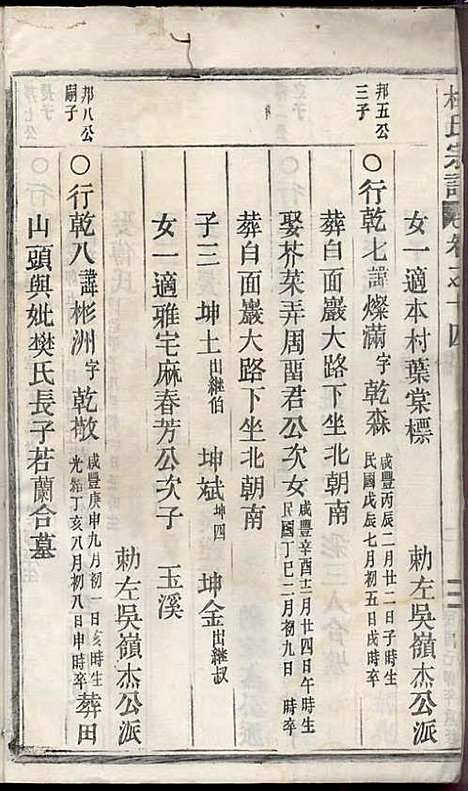 杜氏宗譜 卷之十四
女一適本村葉棠標 勅左吳嶺杰公派
邦五公三子
○行乾七諱燦滿字乾森 咸豐丙辰二月廿二日子時生 民國戊辰七月初五日戌時卒
葬白面巖大路下坐北朝南
娶芥菜弄周閏君公次女 咸豐辛酉十二月廿四日午時生 民國丁巳二月初九日 時卒
葬白面巖大路下坐北朝南
子三 坤土出繼伯 坤斌坤四 坤金出繼叔
女一適雅宅麻春芳公次子 玉溪
勅左吳嶺杰公派
邦八公嗣子
○行乾八諱彬洲字乾敖 咸豐庚申九月初一日亥時生 光緒丁亥八月初八日申時卒 葬田
山頭與妣樊氏長子若蘭合墓